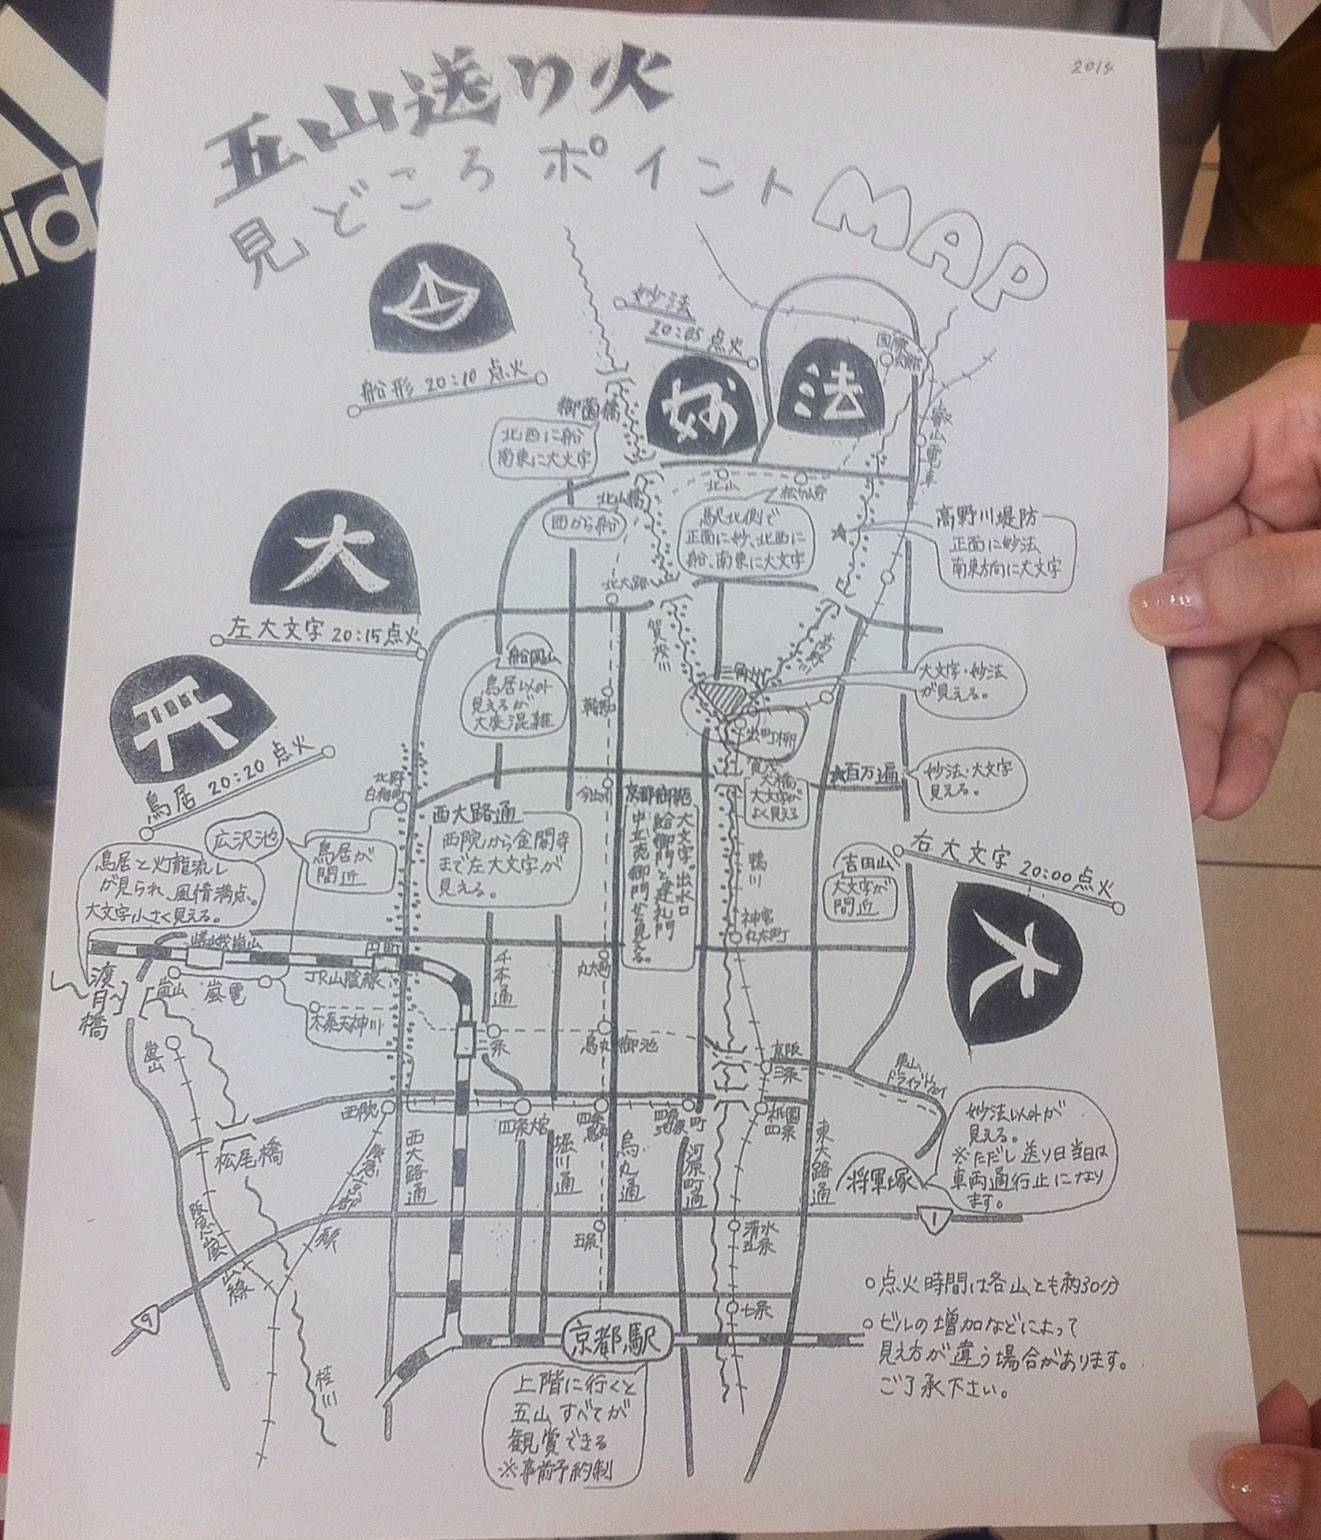 五山送り火
見どころポイントMAP
妙法
20:05 点火
船形 20:10 点火
妙
法
国際
会館
叡山電車
御薗橋
北西に船
南東に大文字
北山橋
西から船
北山
松ヶ崎
駅北側で
正面に妙、北西に
船、南東に大文字
高野川堤防
正面に妙法
南東方向に大文字
大
左大文字 20:15点火
北大路
賀茂川
高野川
船岡山
鳥居以外
見えるが
大変混雑
鞍馬口
三角州
大文字・妙法
が見える。
出町柳
鳥居 20:20 点火
北野
白梅町
今出川
賀茂
大橋、
大文字が
よく見える
百万遍
妙法、大文字
見える。
西大路通
西院から金閣寺
まで左大文字が
見える。
京都御苑
大文字。出水口
蛤御門と建礼門
中立売御門
広沢池
鳥居が
間近
鳥居と灯籠流し
が見られ、風情満点。
大文字小さく見える。
鴨川
吉田山
大文字が
間近
右大文字 20:00 点火
大
神宮
丸太町
嵯峨嵐山
円町
JR山陰線
千本通
丸太町
渡月橋
嵐山
嵐電
太秦天神川
二条
烏丸御池
京阪
三条
東山
ドライブウェイ
嵐山
西院
四条大宮
四条
烏丸
四条
河原町
祇園
四条
松尾橋
阪急京都線
西大路通
堀川通
烏丸通
河原町通
東大路通
将軍塚
妙法以外が
見える。
※ただし送り日当日は
車両通行止になり
ます。
阪急嵐山線
五条
清水
五条
1
9
七条
京都駅
桂川
上階に行くと
五山すべてが
観賞できる
※事前予約制
○点火時間は各山とも約30分
○ビルの増加などによって
見え方が違う場合があります。
ご了承下さい。